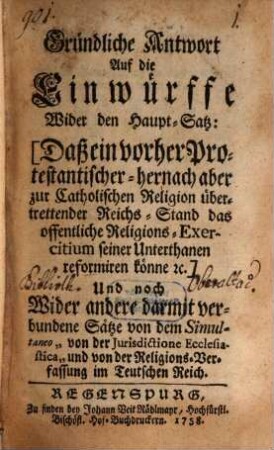 901.
1.
Gründliche Antwort
Auf die
Einwürffe
Wider den Haupt-Satz:
[Daß ein vorher Pro-
testantischer-hernach aber
zur Catholischen Religion über-
trettender Reichs-Stand das
offentliche Religions-Exer-
citium seiner Unterthanen
reformiren könne ꝛc.]
Und noch
Wider andere darmit ver-
bundene Sätze von dem Simul-
taneo„ von der Jurisdictione Ecclesia-
stica„ und von der Religions-Ver-
fassung im Teutschen Reich.
REGENSPURG,
Zu finden bey Johann Veit Rädlmayr, Hochfürstl.
Bischöfl. Hof-Buchdruckern. 1758.